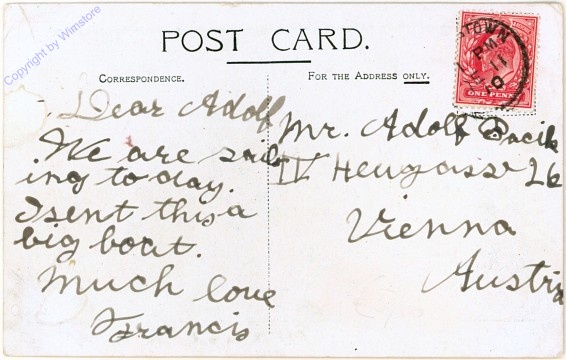 Copyright by Wimstore
POST CARD.
CORRESPONDENCE.
FOR THE ADDRESS ONLY.
TOWN
PM
11
ONE PENNY
Dear Adolf
We are sail
ing today.
I sent this a
big boat.
Much love
Francis
Mr. Adolf
IV Heugasse 26
Vienna
Austria